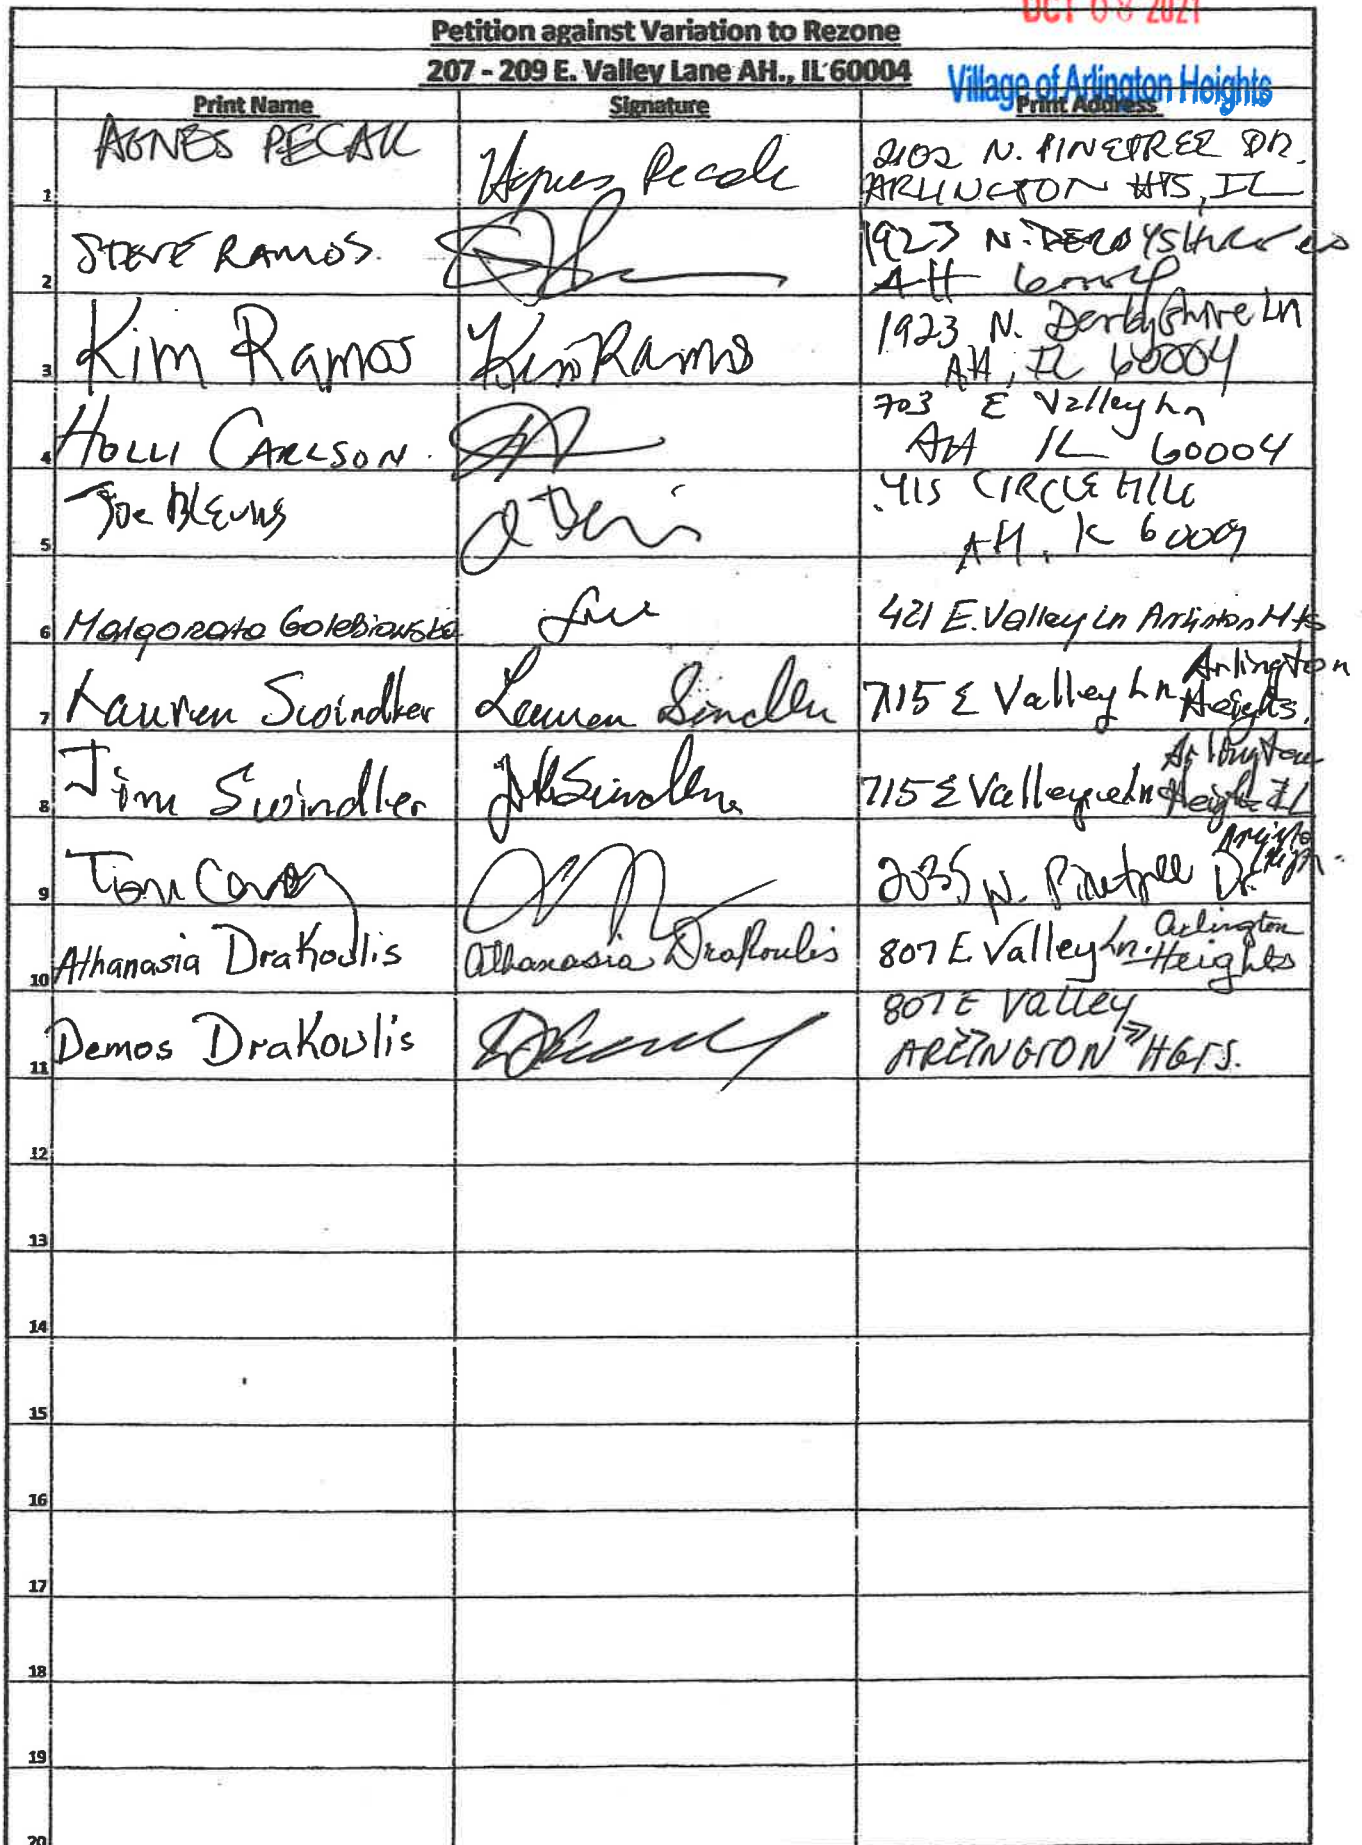 OCT 08 2021
Petition against Variation to Rezone
207 - 209 E. Valley Lane AH., IL 60004
Village of Arlington Heights
Print Name Signature Print Address
AGNES PECAK Agnes Pecak 2102 N. PINETREE DR.
1 ARLINGTON HTS, IL
STEVE RAMOS. 1923 N. DERBYSHIRE LN
2 AH 60004
Kim Ramos Kim Ramos 1923 N. Derbyshire Ln
3 AH, IL 60004
703 E Valley Ln
4 HOLLI CARLSON. AH IL 60004
Joe BLEVINS 415 CIRCLE HILL
5 AH, IL 60004
6 Malgorzata Golebiowska 421 E. Valley Ln Arlinton Hts
Arlington
7 Lauren Swindler Lauren Swindler 715 E Valley Ln Heights,
Arlington
8 Jim Swindler 715 E Valley Ln Heights IL
9 Tom 2035 N. Pinetree Dr.
Arlington
10 Athanasia Drakoulis Athanasia Drakoulis 807 E. Valley Ln. Heights
807 E Valley
11 Demos Drakoulis ARLINGTON HGTS.
12
13
14
15
16
17
18
19
20